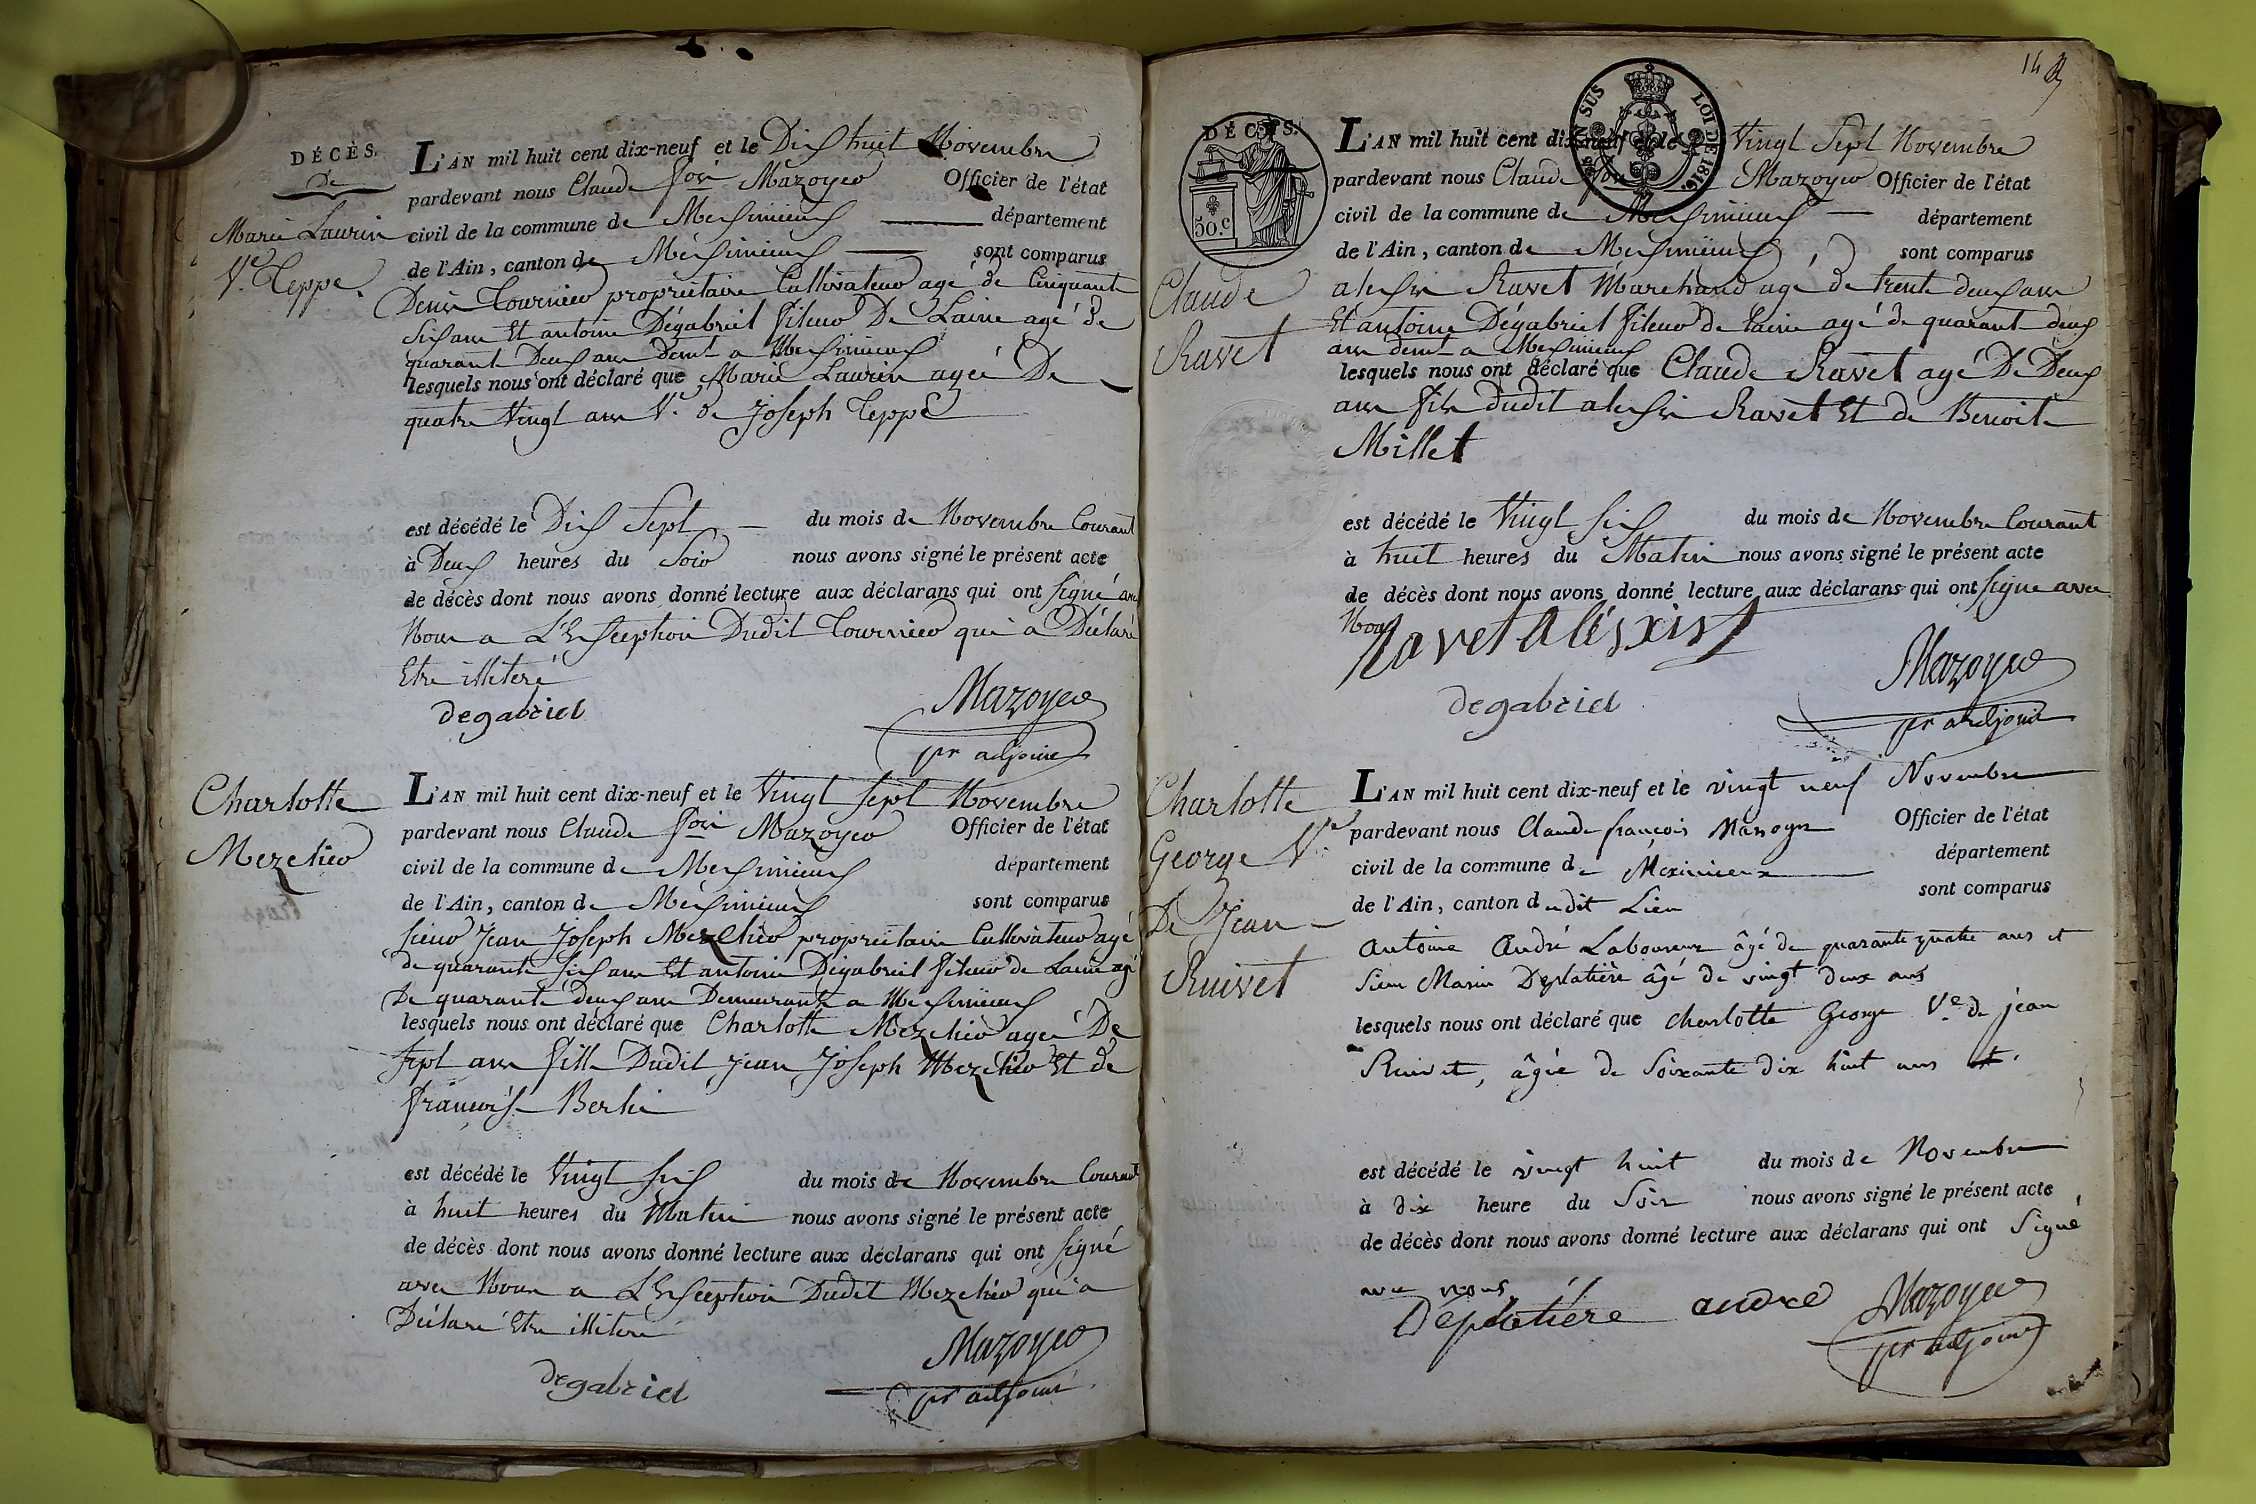 DÉCÈS.
De
Marie Laurin
Ve. Teppe.
L'AN mil huit cent dix-neuf et le Dix huit Novembre
pardevant nous Claude fois Mazoyer Officier de l'état
civil de la commune de Meximieux département
de l'Ain, canton de Méximieux sont comparus
Denis Tournier propriétaire Cultivateur agé de Cinquante
Six ans Et antoine Dégabriel fileur De Laine agé de
quarant Deux ans demt a Meximieux
lesquels nous ont déclaré que Marie Laurin agée De
quatre Vingt ans Ve. de Joseph Teppe
est décédé le Dix Sept du mois de Novembre Courant
à Deux heures du Soir nous avons signé le présent acte
de décès dont nous avons donné lecture aux déclarans qui ont Signé avec
Nous a L'Exception Dudit Tournier qui a Déclaré
Etre illiteré
degabriel
Mazoyer
pr adjoint
Charlotte
Mezelier
L'AN mil huit cent dix-neuf et le Vingt Sept Novembre
pardevant nous Claude fois Mazoyer Officier de l'état
civil de la commune de Meximieux département
de l'Ain, canton de Méximieux sont comparus
sieur Jean Joseph Mezelier propriétaire Cultivateur agé
de quarante six ans Et antoine Dégabriel fileur de Laine agé
De quarante deux ans Demeurants a Meximieux
lesquels nous ont déclaré que Charlotte Mezelier agée De
Sept ans fille Dudit Jean Joseph Mezelier Et de
françoise Berlie
est décédé le Vingt Six du mois de Novembre Courant
à huit heures du Matin nous avons signé le présent acte
de décès dont nous avons donné lecture aux déclarans qui ont Signé
avec Nous a L'Exception Dudit Mezelier qui a
Déclaré Etre illiteré
degabriel
Mazoyer
pr adjoint
DÉCÈS.
50.c
EN SUS
LOI DE 1816.
Claude
Ravet
L'AN mil huit cent dix-neuf et le Vingt Sept Novembre
pardevant nous Claude Mazoyer Officier de l'état
civil de la commune de Meximieux département
de l'Ain, canton de Meximieux sont comparus
alexis Ravet Marchand agé de trente deux ans
Et antoine Dégabriel fileur de laine agé de quarant deux
ans demt a Meximieux
lesquels nous ont déclaré que Claude Ravet agé De Deux
ans fils dudit alexis Ravet Et de Benoite
Millet
est décédé le Vingt Six du mois de Novembre Courant
à huit heures du Matin nous avons signé le présent acte
de décès dont nous avons donné lecture aux déclarans qui ont Signé avec
Nous
Ravet
degabriel
Mazoyer
pr adjoint
Charlotte
George Ve.
De Jean
Ruivet
L'AN mil huit cent dix-neuf et le vingt neuf Novembre
pardevant nous Claude françois Mazoyer Officier de l'état
civil de la commune de Meximieux département
de l'Ain, canton dudit Lieu sont comparus
antoine André Laboureur âgé de quarante quatre ans et
Sieur Marin Déplatière âgé de vingt deux ans
lesquels nous ont déclaré que charlotte George Ve. de jean
Ruivet, âgée de Soixante dix huit ans
est décédé le vingt huit du mois de Novembre
à dix heure du Soir nous avons signé le présent acte
de décès dont nous avons donné lecture aux déclarans qui ont Signé
avec nous
Déplatiére andré Mazoyer
pr adjoint